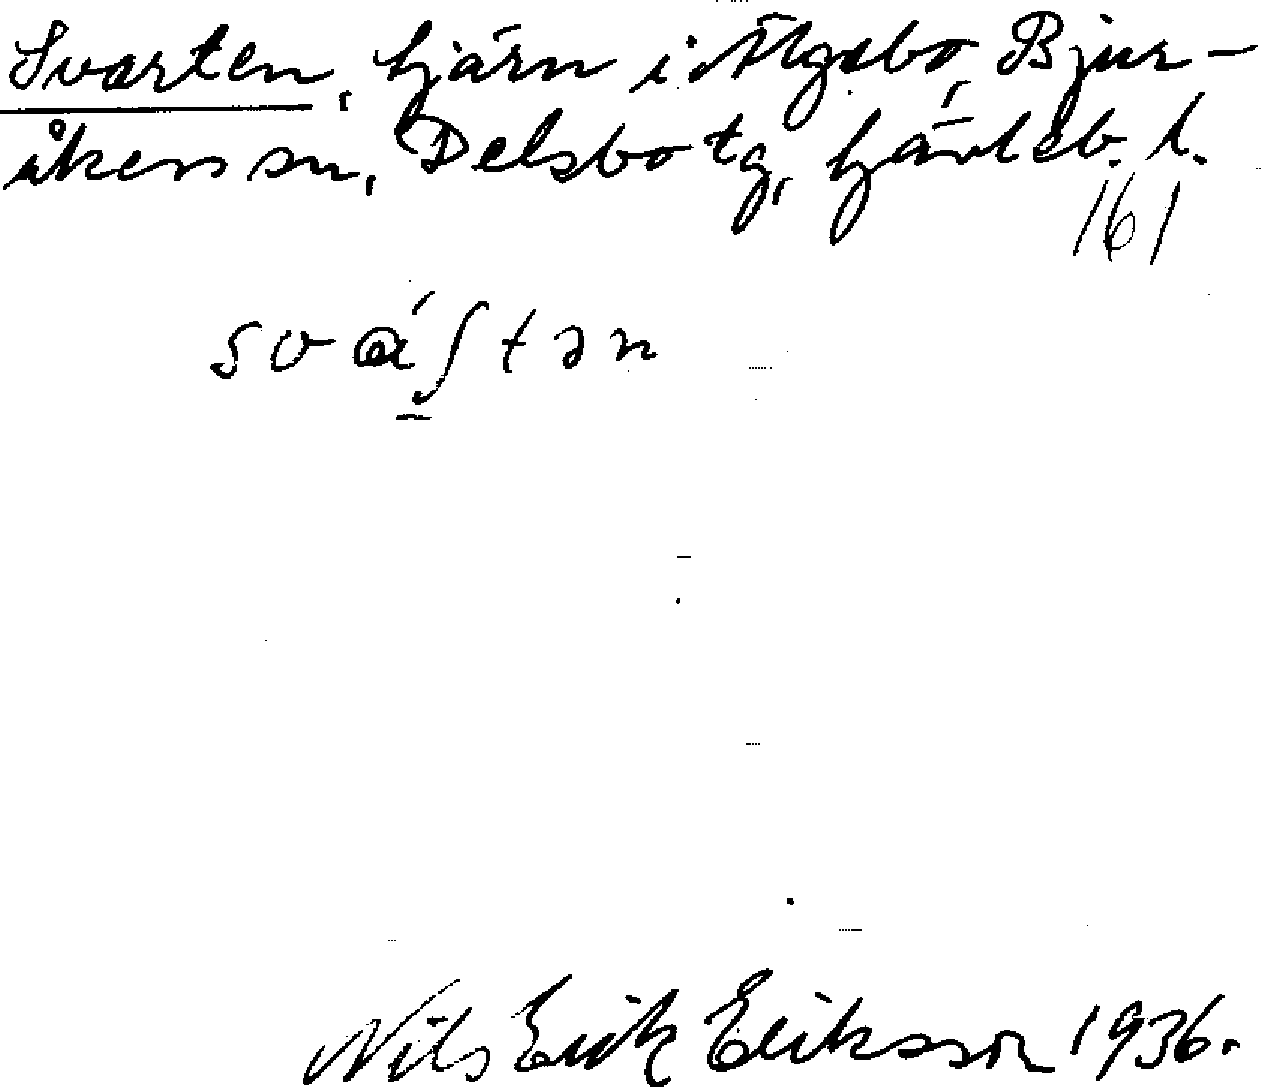 Svarten, tjärn i Älgebo, Bjur-
åkers sn, Delsbo tg, Gävleb. l.
161
Nils Erik Eriksson 1936.